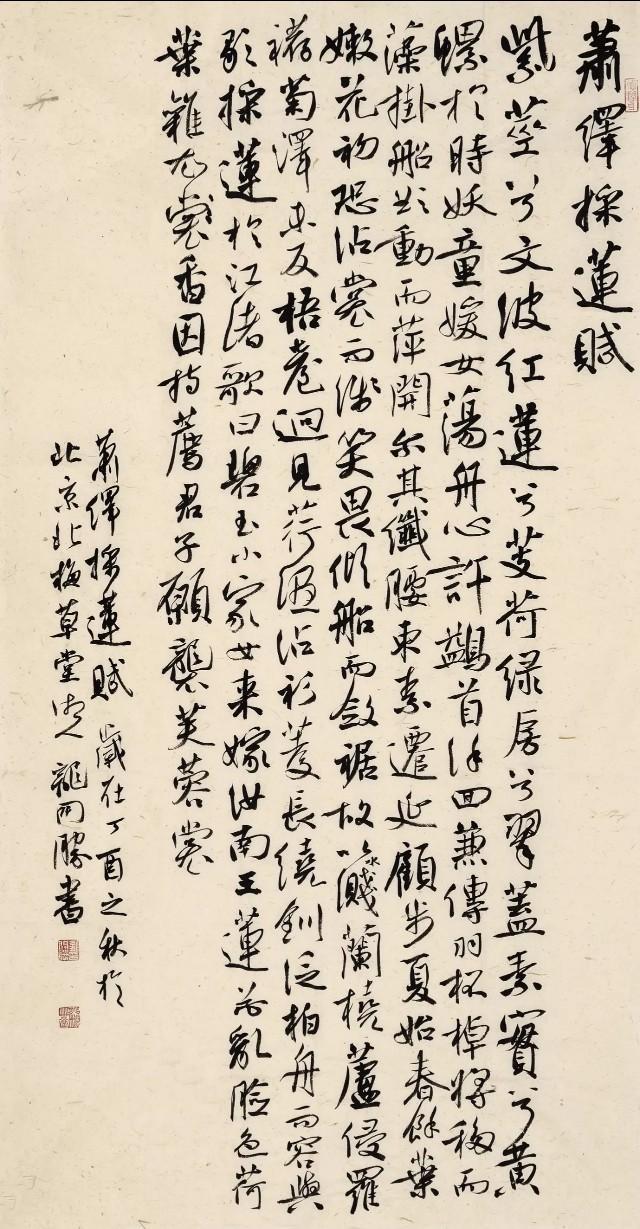 蕭繹採蓮賦
紫莖兮文波紅蓮兮芰荷綠房兮翠蓋素實兮黃
螺於時妖童媛女蕩舟心許鷁首徐迴兼傳羽杯棹將移而
藻掛船欲動而萍開尔其纖腰束素遷延顧步夏始春餘葉
嫩花初恐沾裳而淺笑畏傾船而斂裾故以濺蘭橈蘆侵羅
𧝓菊澤未反梧臺迥見荇濕沾衫菱長繞釧泛柏舟而容與
歌採蓮於江渚歌曰碧玉小家女来嫁汝南王蓮花亂臉色荷
葉雜衣裳香因持薦君子願襲芙蓉裳
蕭繹採蓮賦 歲在丁酉之秋於
北京北梅草堂 龍 書